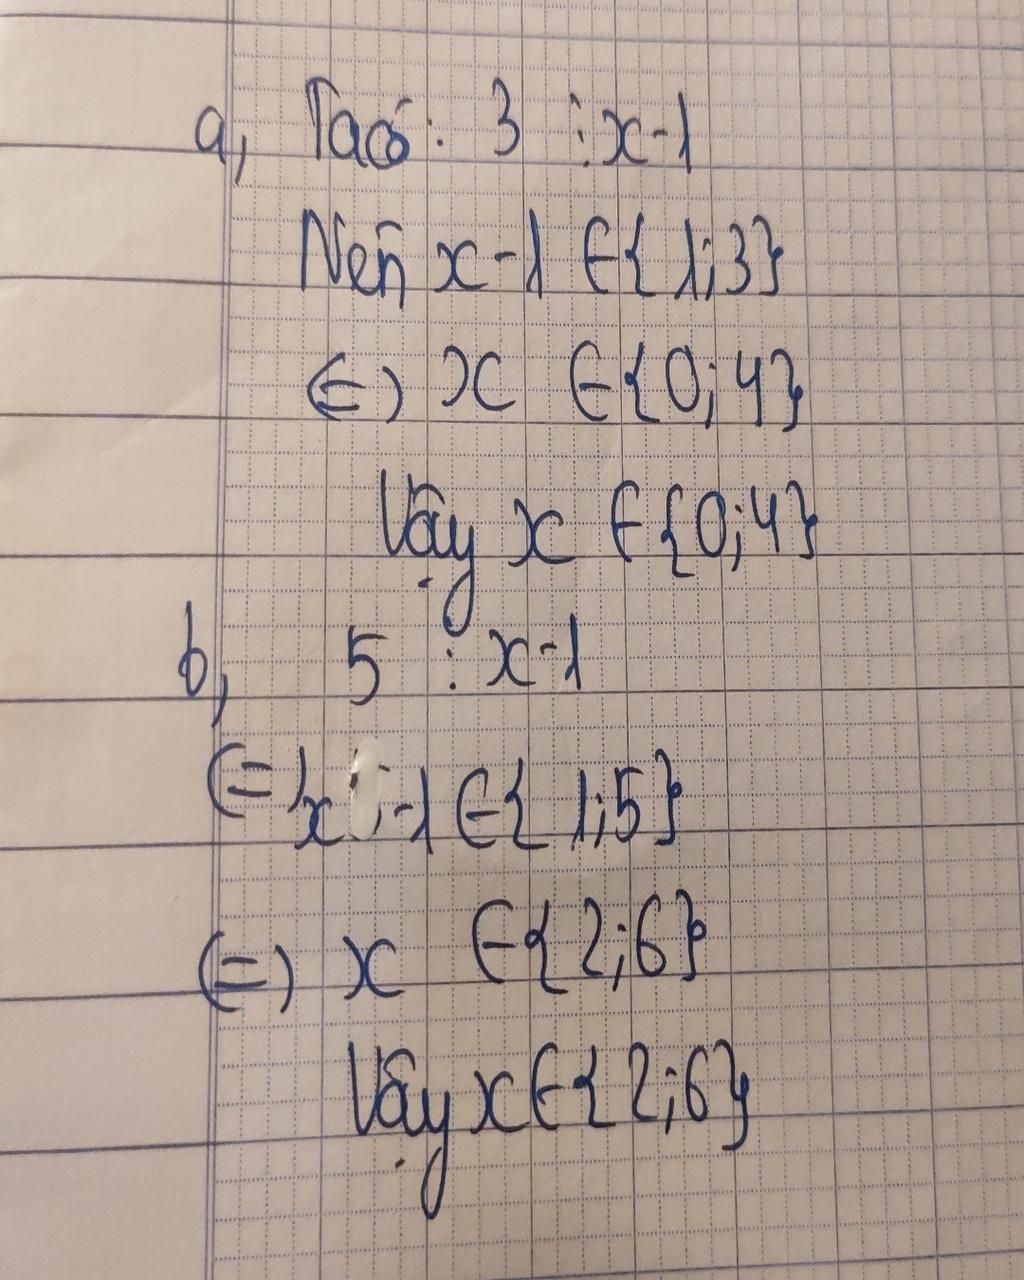 a, Ta có: 3 ⋮ x-1
Nên x-1 ∈ {1;3}
(=) x ∈ {0;4}
Vậy x ∈ {0;4}
b, 5 ⋮ x-1
(=) x -1 ∈ {1;5}
(=) x ∈ {2;6}
Vậy x ∈ {2;6}